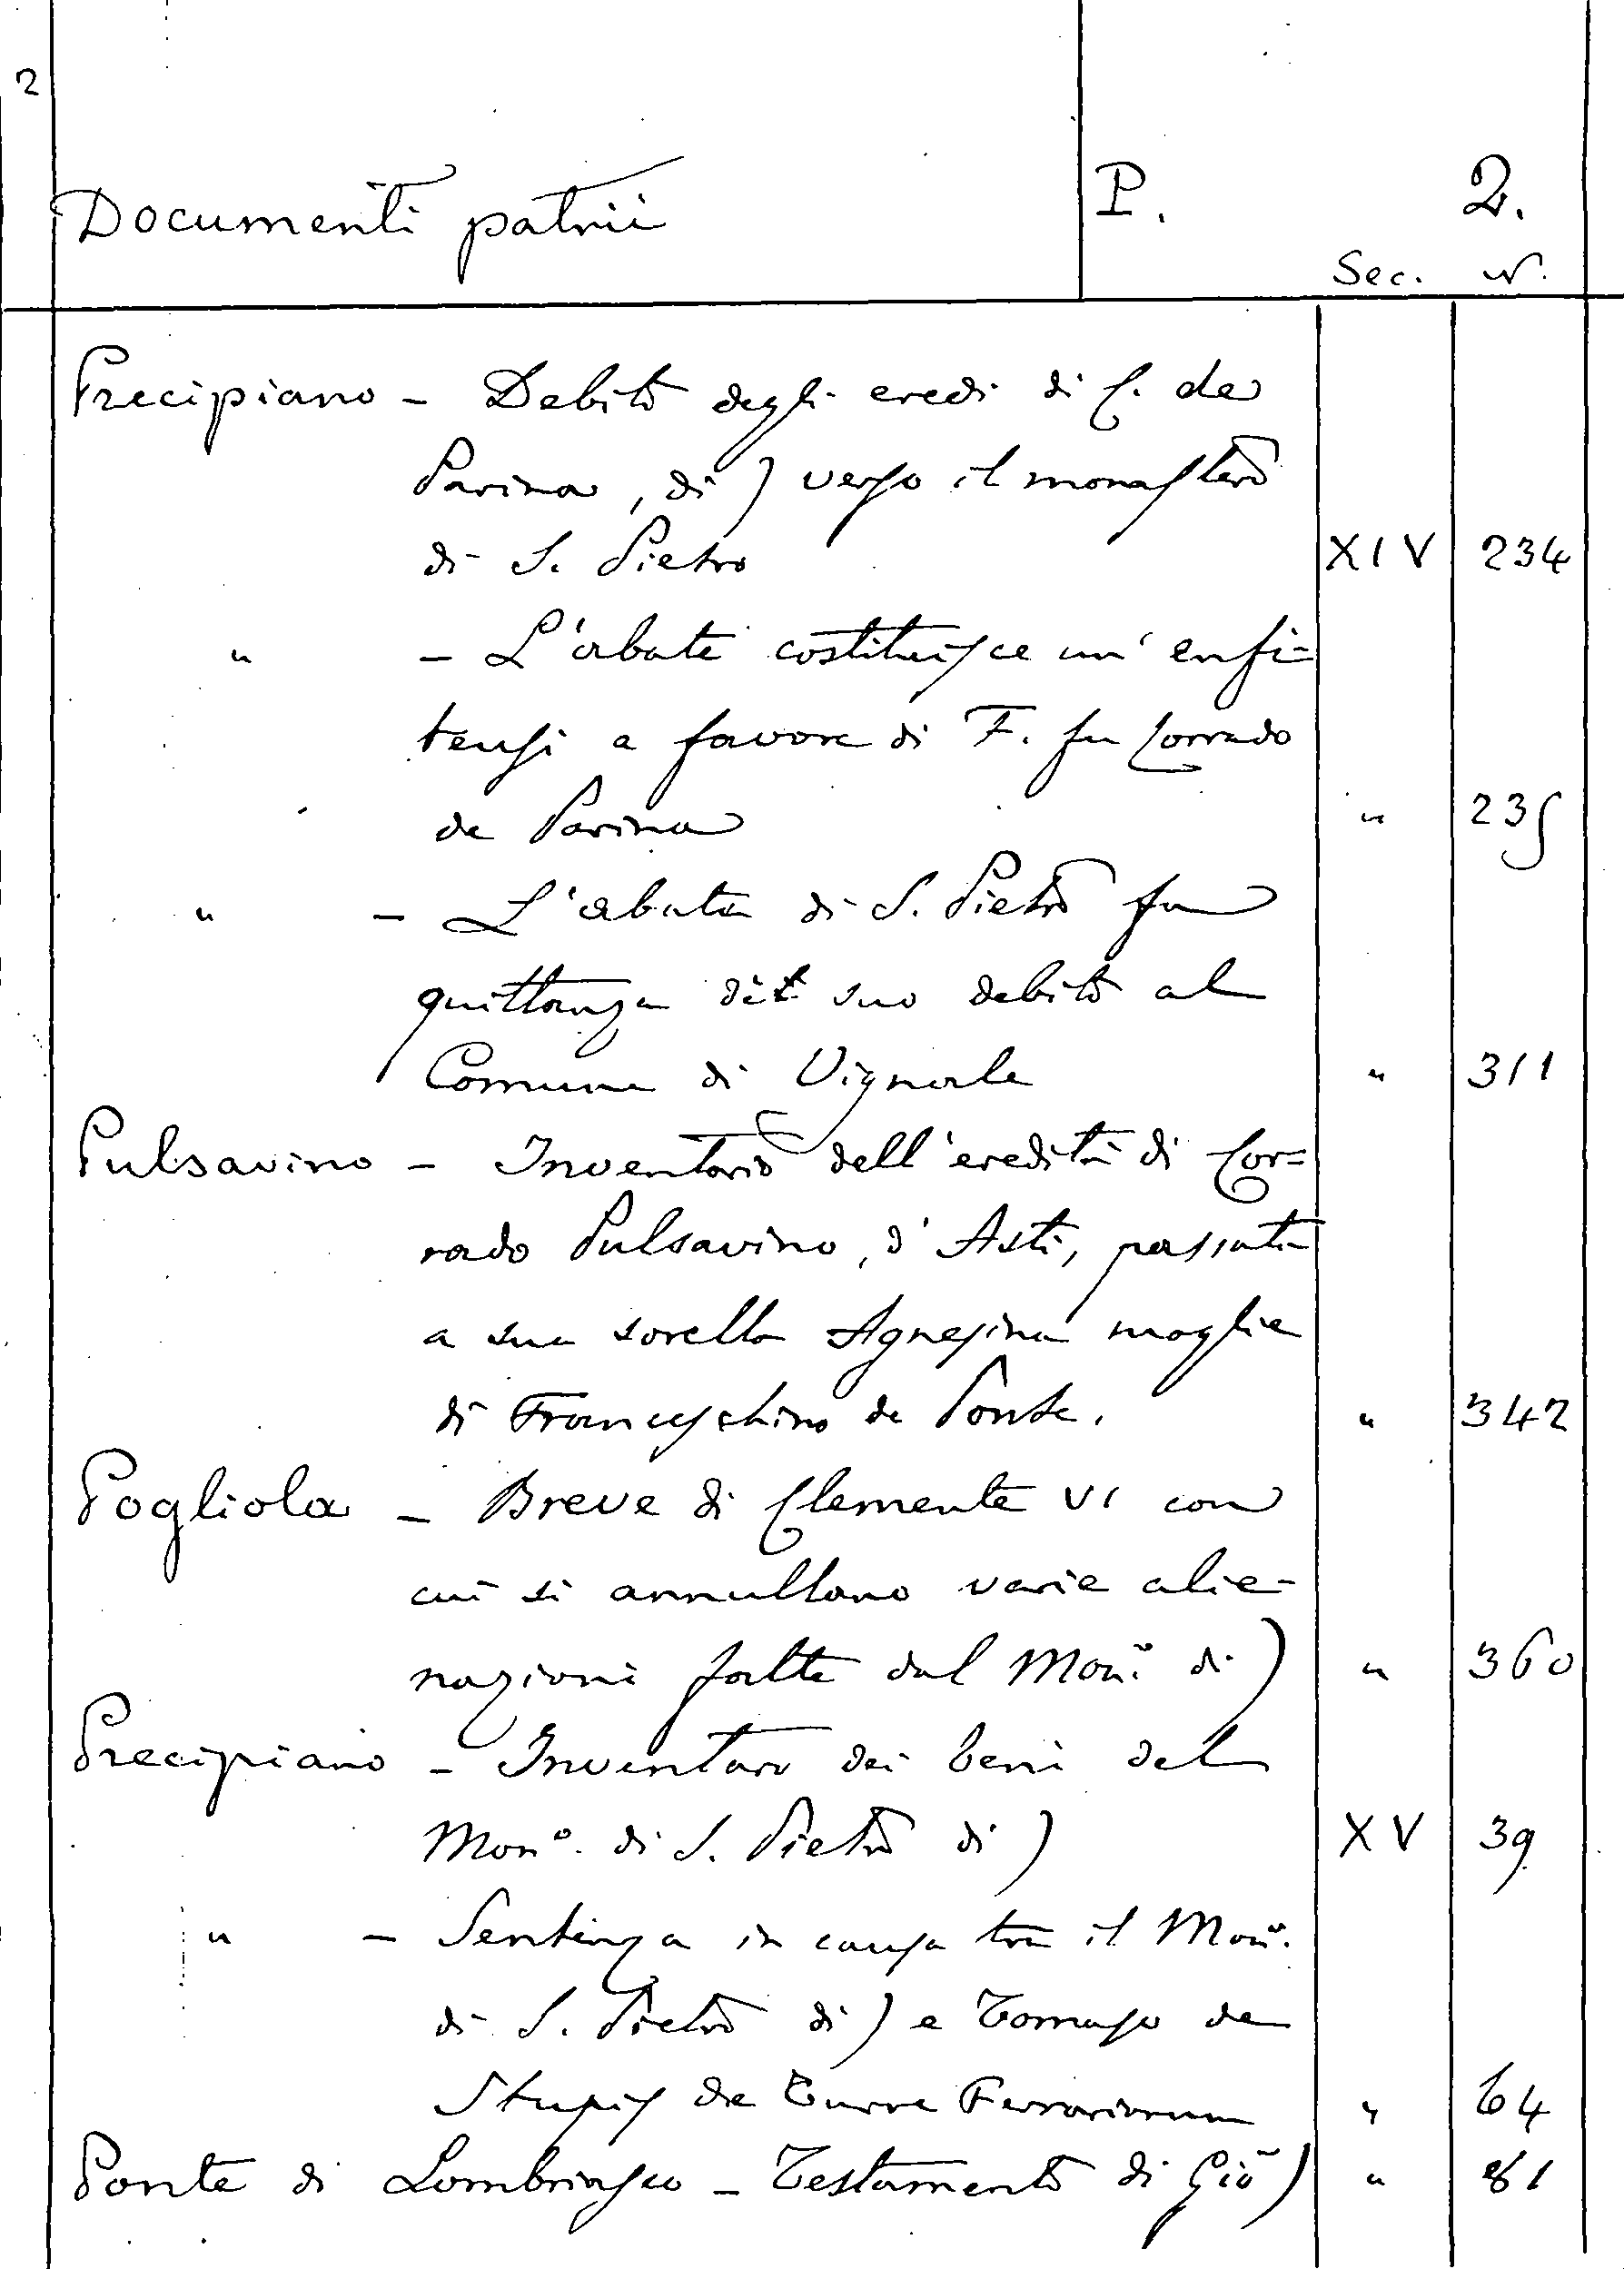 2
Documenti patrii P. 2.
Sec. N.
Precipiano - Debito degli eredi di C. de
Parina, di ) verso il monastero
di S. Pietro XIV 234
" - L'abate costituisce un'enfi=
teusi a favore di F. fu Corrado
de Parina " 235
" - L'abate di S. Pietro fa
quittanza del suo debito al
Comune di Vignole " 311
Pulsavino - Inventario dell'eredità di Cor=
rado Pulsavino, d'Asti, passati
a sua sorella Agnesina moglie
di Franceschino de Ponte. " 342
Pogliola - Breve di Clemente VI con
cui si annullano varie alie-
nazioni fatte dal Mon.º di ) " 360
Precipiano - Inventaro dei beni del
Monº. di S. Pietro di ) XV 39
" - Sentenza in causa tra il Monº.
di S. Pietro di ) e Tomaso de
Stupis de Turre Ferrariorum " 64
Ponte di Lombriasco - Testamento di Giō ) " 81